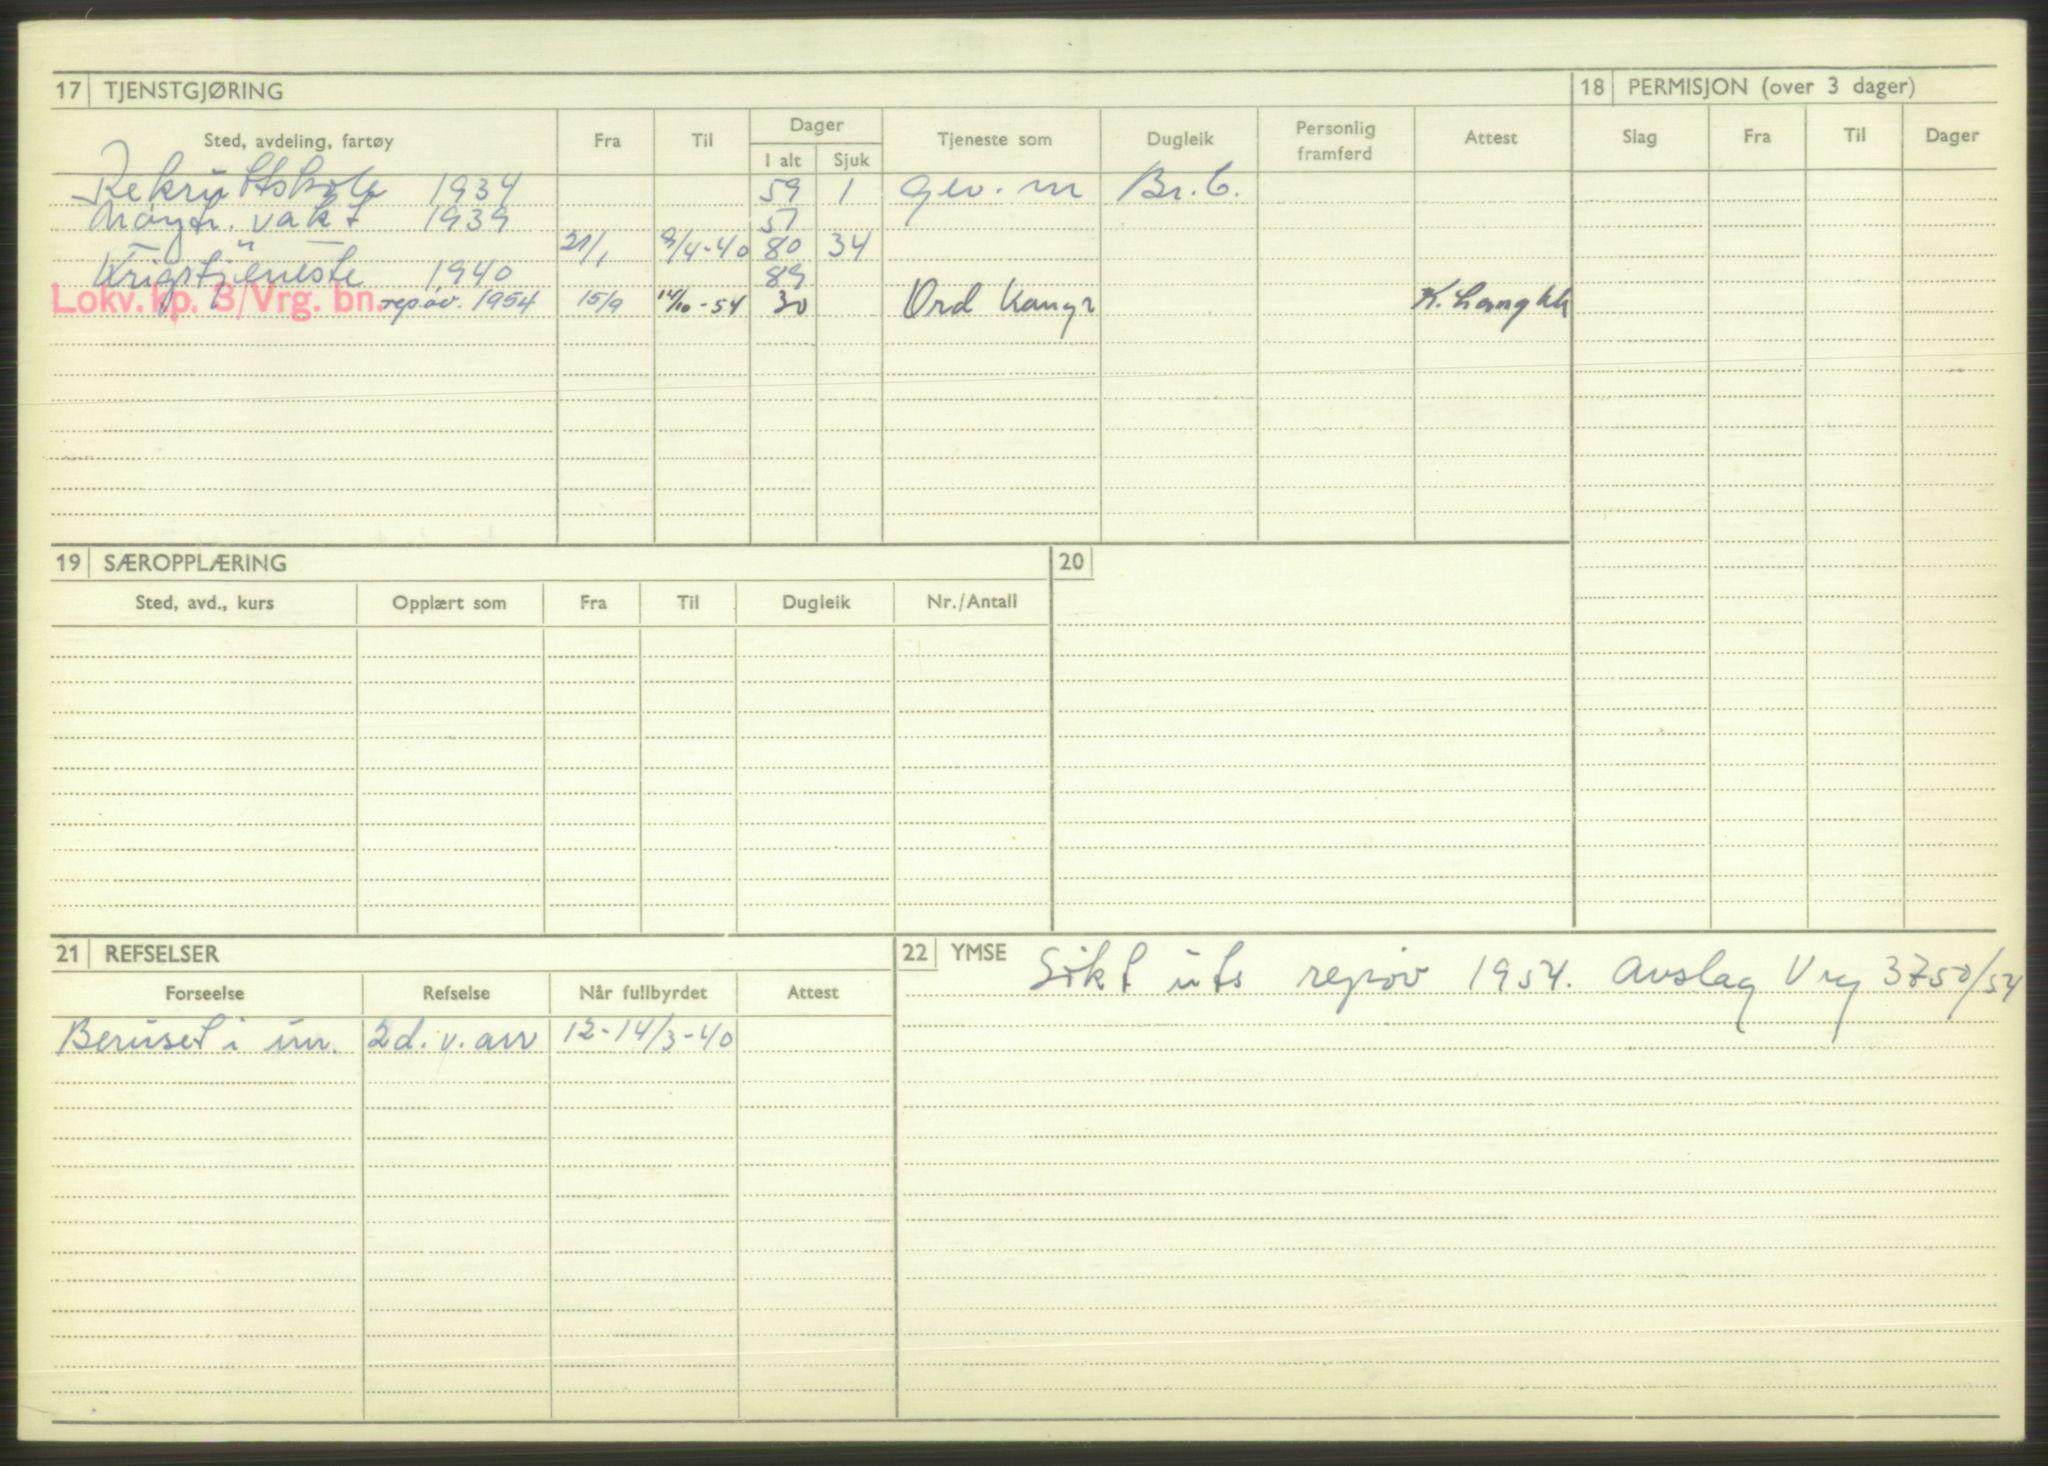 17 TJENSTGJØRING 18 PERMISJON (over 3 dager)
Sted, avdeling, fartøy Fra Til Dager Tjeneste som Dugleik Personlig framferd Attest Slag Fra Til Dager
I alt Sjuk
Rekruttskole 1934 59 1 Gev. m Br. b.
Nøytr. vakt 1939 57
" — 21/1 9/4-40 80 34
Krigstjeneste 1940 89
Lokv. kp. 3/Vrg. bn. repøv. 1954 15/9 14/10-54 30 Ord
19 SÆROPPLÆRING 20
Sted, avd., kurs Opplært som Fra Til Dugleik Nr./Antall
21 REFSELSER 22 YMSE Søkt uts repøv 1954. Avslag Vrg 3750/54
Forseelse Refselse Når fullbyrdet Attest
Beruset i un. 2d. v. arr 12-14/3-40